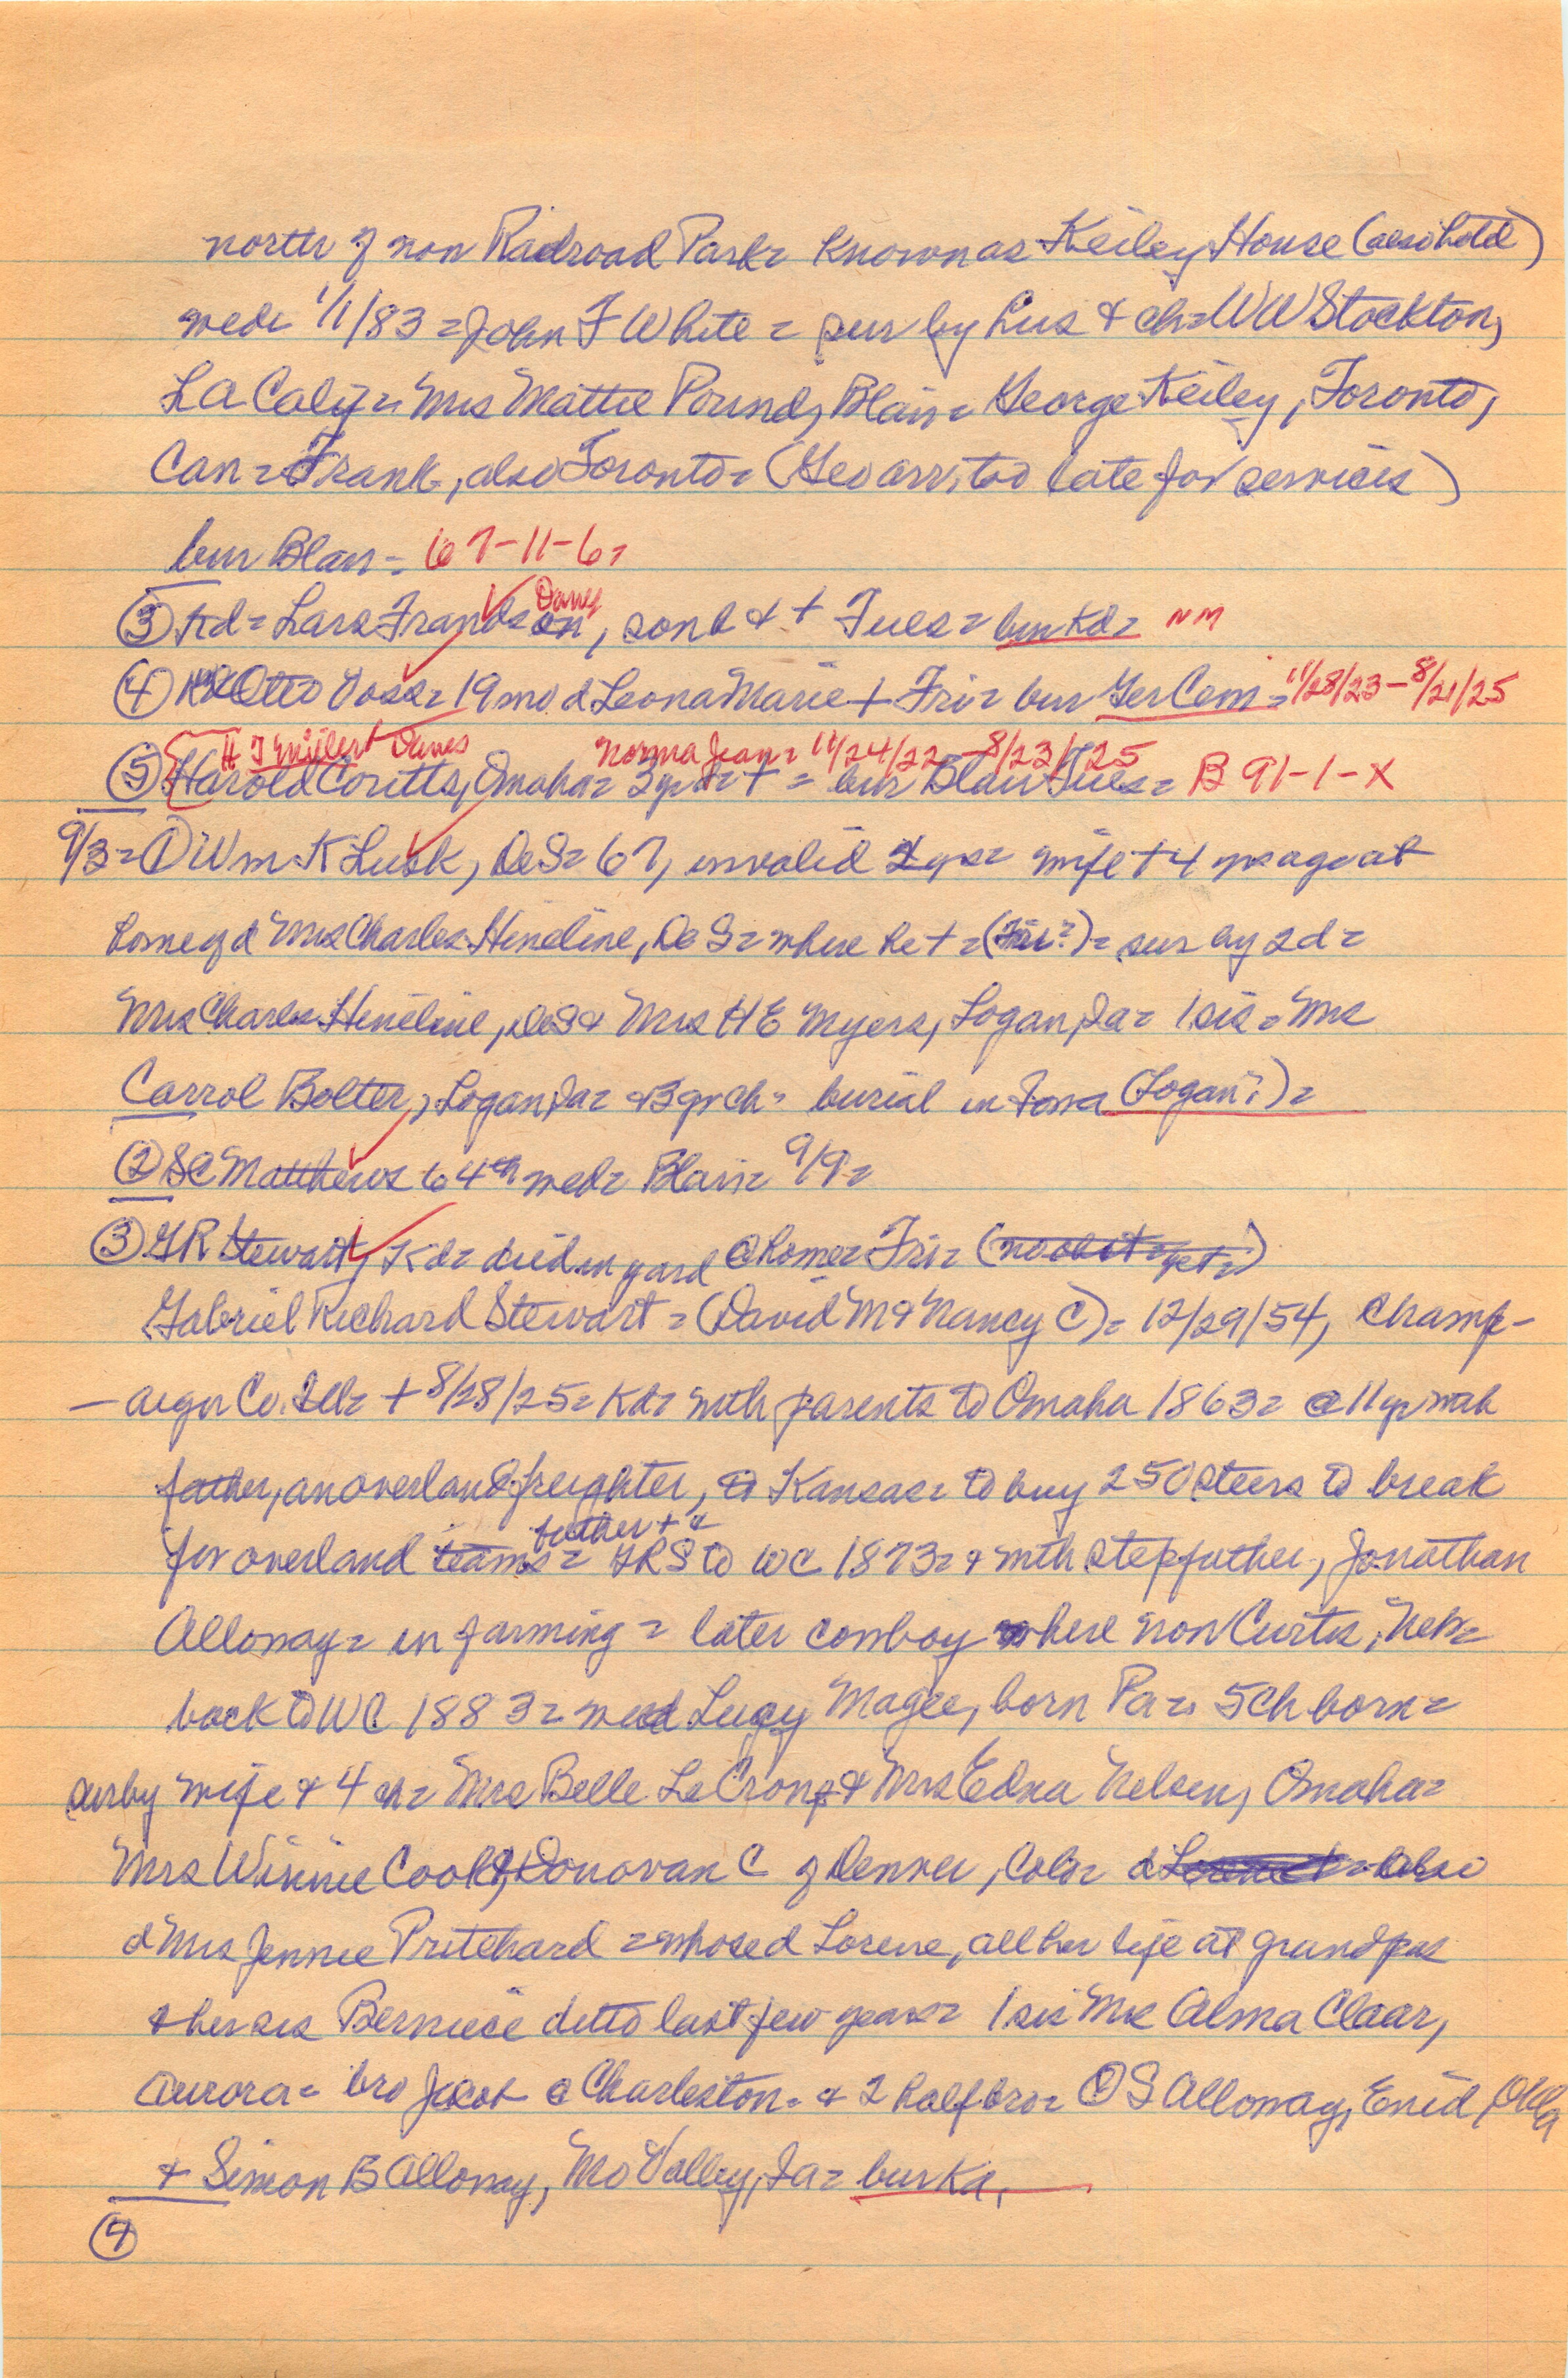 north of now Railroad Park = known as Keiley House (also hotel)
wed = 1/1/83 = John F White = sur by hus & ch = W W Stockton,
LA Calif = Mrs Mattie Pound, Blair = George Keiley, Toronto,
Can = Frank, also Toronto = (Geo arr, too late for services)
bur Blair = 67-11-6 =
Dany
③ Kd = Lars Frandsen, son b & + Tues = bur Kd = NM
④ Otto Voss = 19 mo d Leona Marie + Fri = bur Ger Cem = 11/28/23 - 8/21/25
Norma Jean = 11/24/22 - 8/23/25
⑤ Harold Coritts, Omaha = 3 yr d = + = bur Blair Tues = B 91-1-X
9/3 = ① Wm K Lusk, DeS = 67, invalid 2 yrs = wife + 4 yrs ago = at
home of d Mrs Charles Hineline, DeS = where he + = (Fri?) = sur by 2 d =
Mrs Charles Hineline, DeS & Mrs H E Myers, Logan, Ia = 1 sis = Mrs
Carrol Bolter, Logan, Ia = & 3 gr ch = burial in Iowa (Logan?) =
② S C Matthews 64th wed = Blair = 9/9 =
③ G R Stewart, Kd = died in yard @ home = Fri = (no obit = yet =)
Gabriel Richard Stewart = (David M & Nancy C) = 12/29/54, Champ-
-aign Co. Ill = + 8/28/25 = Kd = with parents to Omaha 1863 = @ 11 yr with
father, an overland freighter, to Kansas = to buy 250 steers to break
father + &
for overland teams = GRS to WC 1873 = & with stepfather, Jonathan
Alloway = in farming = later cowboy where now Curtis, Neb =
back to WC 1883 = wed Lucy Magee, born Pa = 5 ch born =
sur by wife & 4 ch = Mrs Belle La Crone & Mrs Edna Nelsen, Omaha =
Mrs Winnie Cook, & Donovan C of Denver, Colo = also
d Mrs Jennie Pritchard = whose d Lorene, all her life at grandpas
& her sis Berniece ditto last few years = 1 sis Mrs Alma Claar,
Aurora = bro Jacob @ Charleston = & 2 half bro = O S Alloway, Enid, Okla
& Simon B Alloway, Mo Valley, Ia = bur Kd,
④